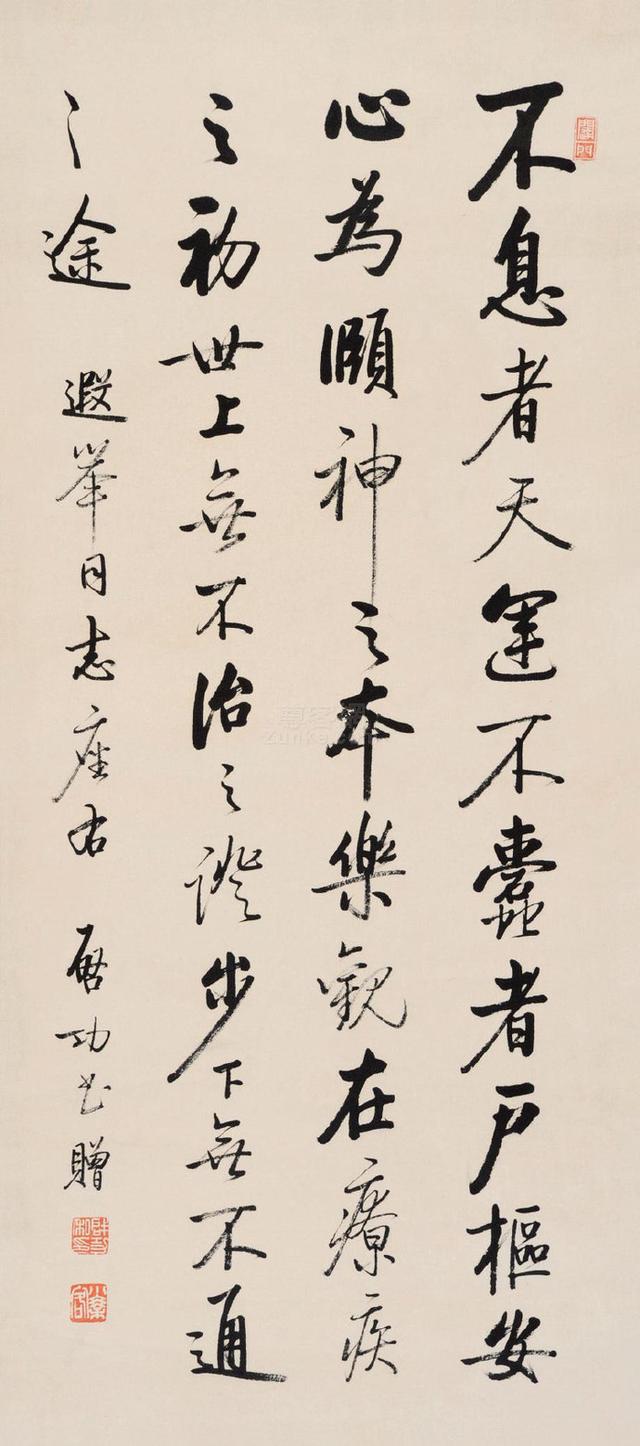 不息者天運不蠹者戶樞安
心為頤神之本樂觀在療疾
之初世上無不治之證步下無不通
之途
遐舉同志座右
啓功書贈